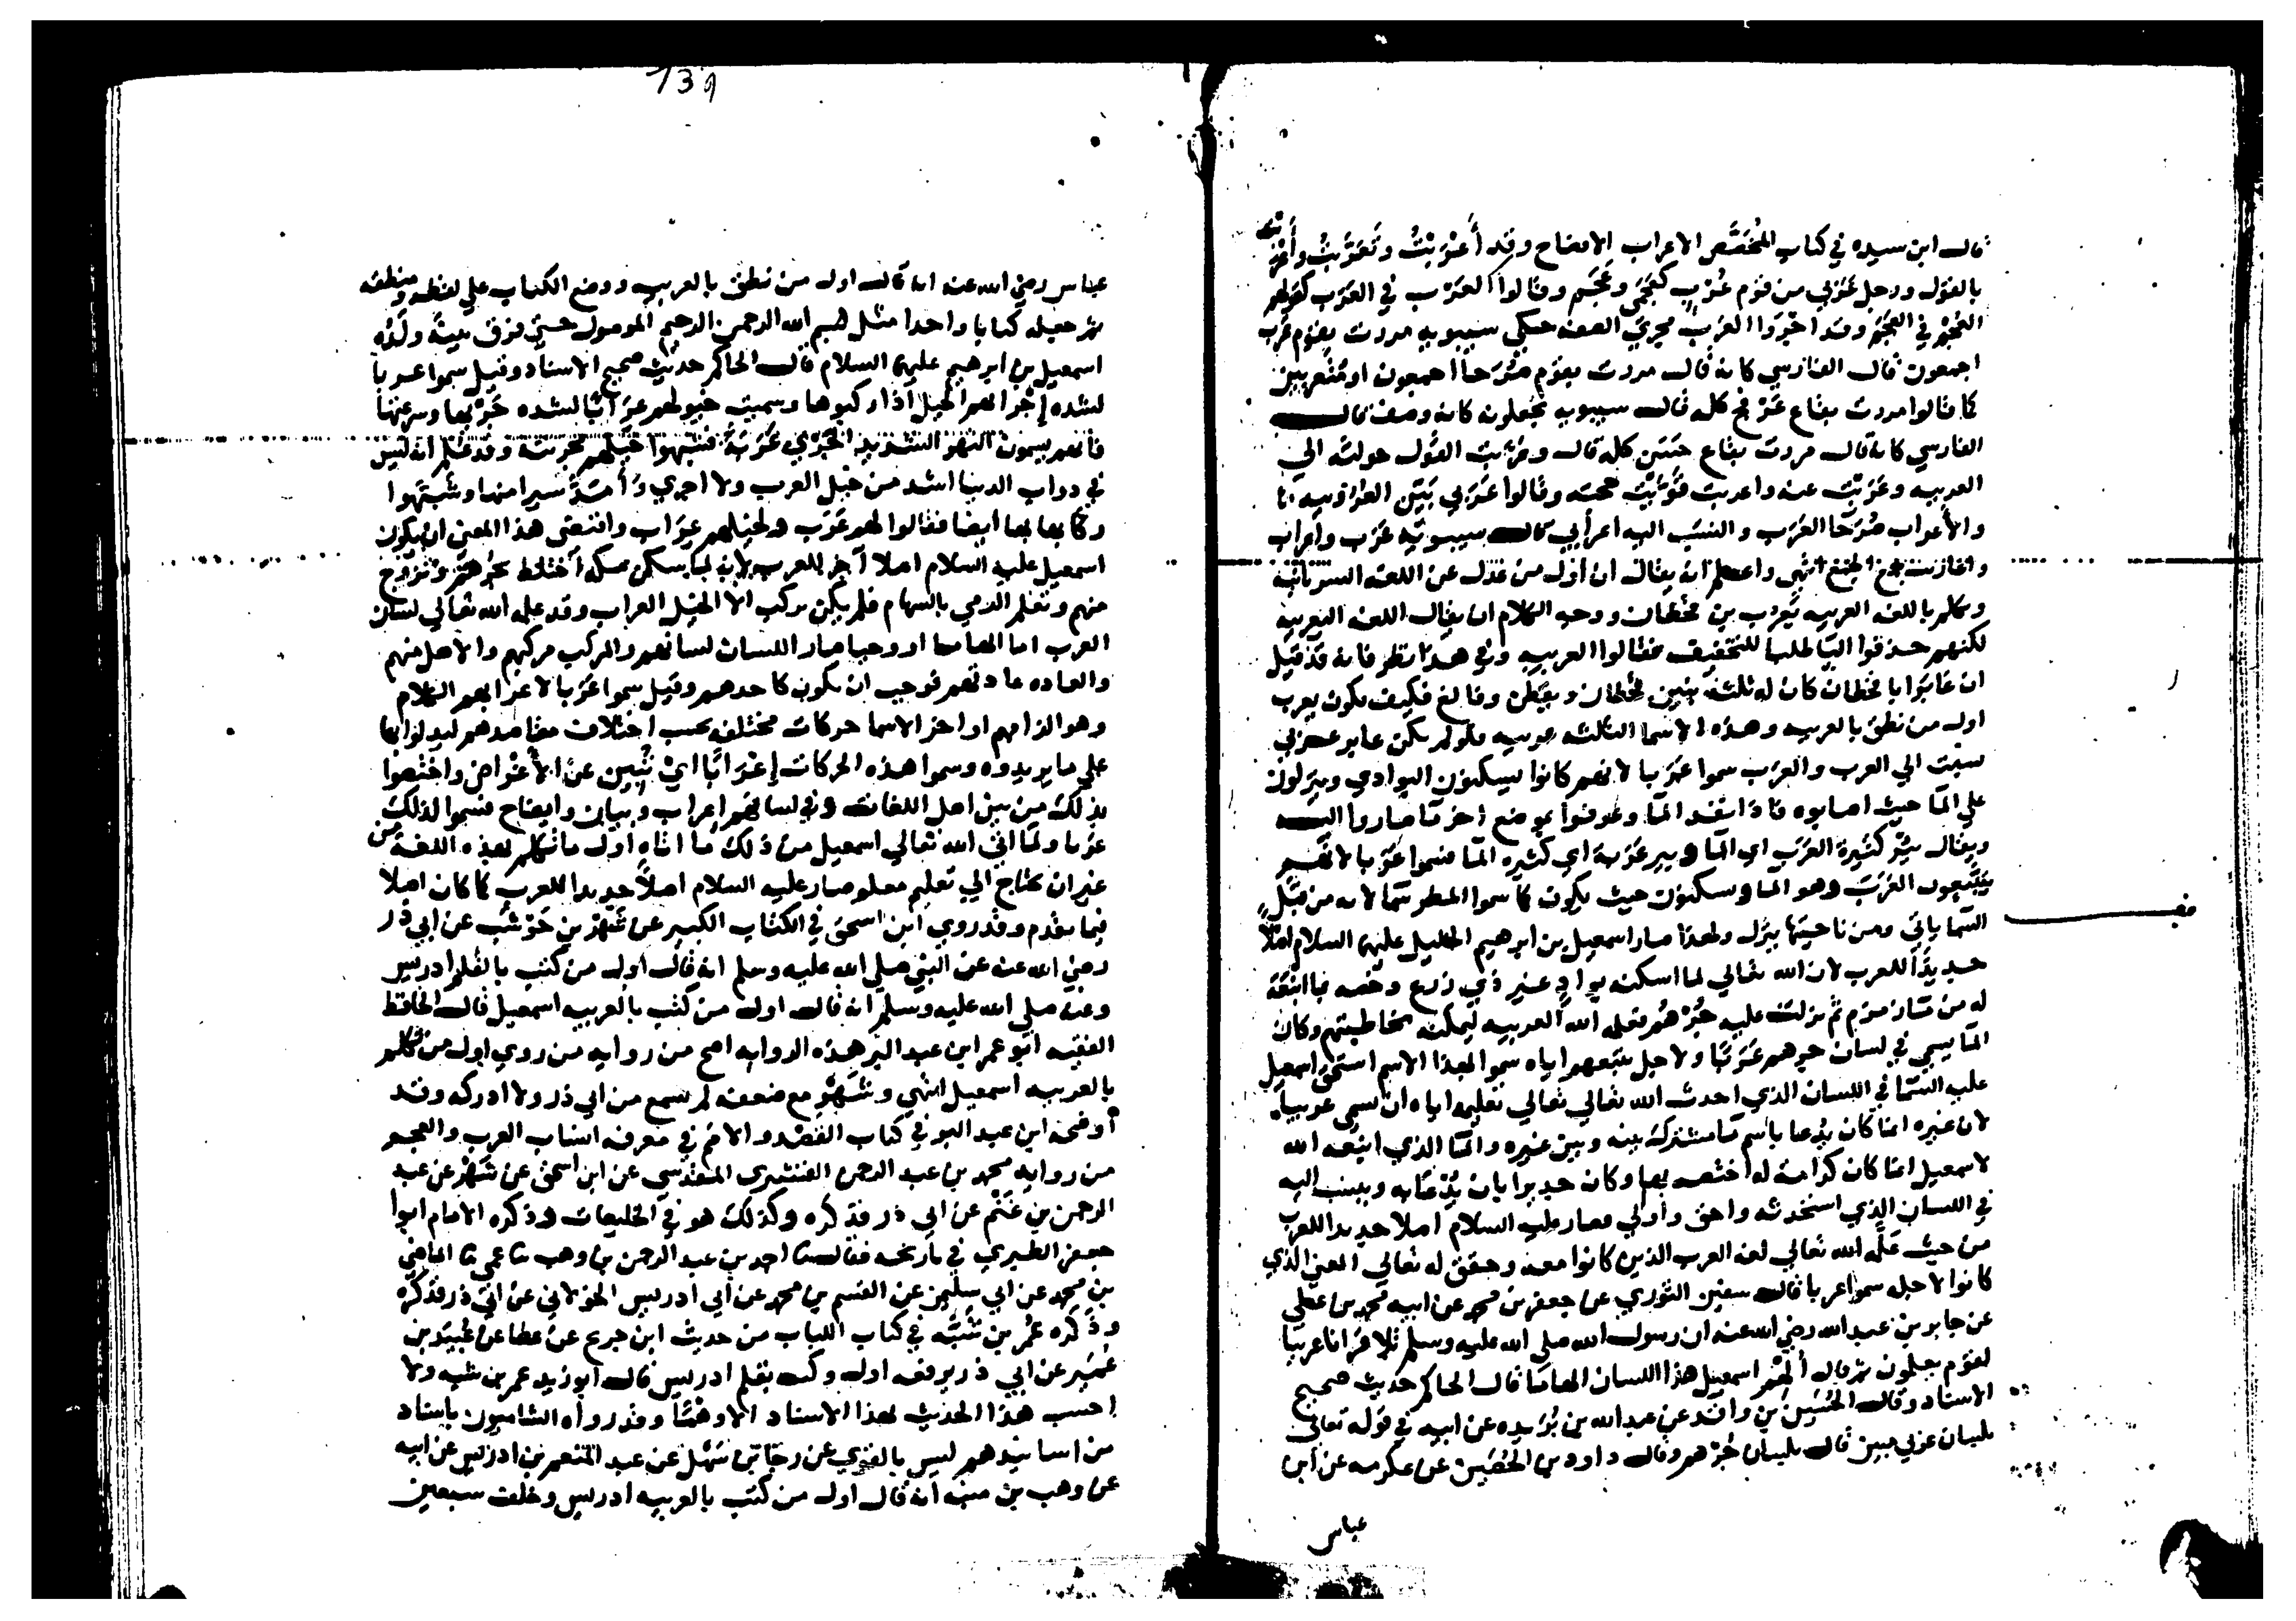 قال ابن سيده في كتاب المُخَصَّص الاعراب الافصاح وقد أَعْرَبْتُ وتَعَرَّبْتُ وأَعْرَبْتُه
بالقول ورجل عَرَبي من قوم عُرْب كعَجَمي وعَجَم وقالوا العَرَب في العُرْب كقولهم
العُجْم في العَجَم وقد اجْرَوا العَرَب مجري الصفه حكي سيبويه مررت بقوم عَرَب
اجمعون قال الفارسي كانه قال مررت بقوم صُرَحا اجمعون او مُتَعربين
كما قالوا مررت بقاع عَرْفج كله قال سيبويه يجعلونه كانه وصف قال
الفارسي كانه قال مررت بقاع خَشِن كله قال وعَرُبت القول حولته الي
العربيه وعَرَّبْت عنه واعربت قَوَّيت حجته وقالوا عَرَبي بَيِّن العَرَابيه
والأعراب صُرَحا العَرَب والنسَب اليه اعرابي قال سيبويه عَرَب واعراب
انتهي واعلم ان يقال ان اول من عَدَل عن اللغه السريانيه
وتكلم باللغه العربيه يَعْرُب بن قحطان ووجه الكلام ان يقال اللغه اليعربيه
لكنهم حذفوا اليا طلبا للتخفيف فقالوا العربيه وفي هذا نظر فانه قد قيل
ان عابرا ابا قحطان كان له ثلثة بنين قحطان ويقطن وفالغ فكيف يكون يعرب
اول من نطق بالعربيه وهذه الاسما الثلثه عربيه فلو لم يكن عابر عربي
نسبت الي العرب والعَرَب سموا عَرَبا لانهم كانوا يسكنون البوادي وينزلون
علي المآ حيث اصابوه فاذا نفد المآ وعرفوا بموضع اخر مآ صاروا اليه
ويقال بئر كثيرة العَرَب اي المآ وبير عَرَبه اي كثيره المآ فسموا عَرَبا لانهم
يَتَّبِعون العَرَبَ وهو المآ ويسكنون حيث يكون كما سموا المطر سَمآ لانه من قِبَل
السَّما ياتي ومن ناحيتها ينزل ولهذا صار اسمعيل بن ابرهيم الخليل عليهما السلام اصلًا
جديدًا للعرب لان الله تعالي لما اسكنه بوادٍ غير ذي زرع وخصه بما انبَعَه
له من مآ زمزم ثم نزلت عليه جُرْهُم فعلمه الله العربيه ليمكنه مخاطبتهم وكان
المآ يسمي في لسان جرهم عَرَبًا ولاجل تتبعهم اياه سموا بهذا الاسم استحق اسمعيل
عليه السلام في اللسان الذي احدث الله تعالي تعالي تعليمه اياه ان سمي عربيا
لان غيره انما كان يُدعا باسم مآ مشترك بينه وبين غيره والمآ الذي انبعه الله
لاسمعيل انما كان كرامة له اختصه بها وكان جديرا بان يُدْعَا به وينسب اليه
في اللسان الذي استحدثه واحق وأولي فصار عليه السلام اصلا جديدا للعرب
من حيث عَلَّمه الله تعالي لغه العرب الذين كانوا معه وحقق له تعالي المعني الذي
كانوا لاجله سموا عربا قال سفين الثوري عن جعفر بن محمد عن ابيه محمد بن علي
عن جابر بن عبد الله رضي الله عنه ان رسول الله صلي الله عليه وسلم تلا قرانا عربيا
لقوم يعلمون ثم قال أُلْهِمَ اسمعيل هذا اللسان الهاما قال الحاكم حديث صحيح
الاسناد وقال الحُسَين بن واقد عن عبد الله بن بُرَيده عن ابيه في قوله تعالي
بلسان عربي مبين قال بلسان جُرْهم وقال داود بن الحُصَين عن عكرمه عن ابن
عباس
139
عباس رضي الله عنه انه قال اول من نطق بالعربيه ووضع الكتاب علي لفظه ومنطقه
ثم جعله كتابا واحدا مثل بسم الله الرحمن الرحيم الموصول حتي فرق بينه ولده
اسمعيل بن ابرهيم عليهما السلام قال الحاكم حديث صحيح الاسناد وقيل سموا عربا
لشده إجْرايهم الخيل اذا ركبوها وسميت خيولهم عِرَابًا لشده جَرْيها وسرعتها
فانهم يسمون النهر الشديد الجَرْي عَرَبَةً فشبهوا خيلهم بجريته وقد علم انه ليس
في دواب الدنيا اشد من خيل العرب ولا اجري وَأَمَدَّ سيرا منها وشَبَّهوا
ركابها بها ايضا فقالوا لهم عَرَب ولخيلهم عِرَاب واقتضي هذا المعني ان يكون
اسمعيل عليه السلام اصلا آخر للعرب لانه لما سكن مكه اختلط بجُرْهُم وتزوج
منهم وتعلم الرمي بالسهام فلم يكن يركب الا الخيل العراب وقد علمه الله تعالي لسان
العرب اما الهاما او وحيا فصار اللسان لسانهم والمركب مركبهم والاهل منهم
والعاده عادتهم فوجب ان يكون كاحدهم وقيل سموا عَرَبا لاعرابهم الكلام
وهو الزامهم اواخر الاسما حركات مختلفه بحسب اختلاف مقاصدهم ليدلوا بها
علي ما يريدوه وسموا هذه الحركات إعْرَابًا ايْ تُبِين عن الأغْراض واختصوا
بذلك من بين اهل اللغات وفي لسانهم إعراب وبيان وايضاح فسموا لذلك
عَرَبا ولما اتي الله تعالي اسمعيل من ذلك ما اتاه اول ما تكلم بهذه اللغه من
غير ان يحتاج الي تعليم معلم صار عليه السلام اصلًا جديدا للعرب كما كان اصلا
فيما تقدم وقد روي ابن اسحق في الكتاب الكبير عن شَهْر بن حَوْشَب عن ابي ذر
رضي الله عنه عن النبي صلي الله عليه وسلم انه قال اول من كتب بالقلم ادريس
وعنه صلي الله عليه وسلم انه قال اول من كتب بالعربيه اسمعيل قال الحافظ
الفقيه ابو عمر ابن عبد البر هذه الروايه اصح من روايه من روي اول من تكلم
بالعربيه اسمعيل انتهي وشَهْرٌ مع ضعفه لم يسمع من ابي ذر ولا ادركه وقد
أوضحه ابن عبد البر في كتاب القَصْد والامَم في معرفه انساب العرب والعجم
من روايه محمد بن عبد الرحمن المقدسي عن ابن اسحق عن شَهْر عن عبد
الرحمن بن غَنْم عن ابي ذر فذكره وكذلك هو في الخلعيات وذكره الامام ابوا
جعفر الطبري في تاريخه فقال ثنا احمد بن عبد الرحمن بن وهب ثنا عمي ثنا الماضي
بن محمد عن ابي سليمن عن القسم بن محمد عن ابي ادريس الخولاني عن ابي ذر فذكره
وذكره عُمَر بن شَبَّه في كتاب اللباب من حديث ابن جريج عن عطا عن عُبَيْد بن
عُمَير عن ابي ذر يرفعه اول وكتب بقلم ادريس قال ابو زيد عمر بن شبه ولا
احسب هذا الحديث بهذا الاسناد الا وهْمًا وقد رواه الشاميون باسناد
من اسانيدهم ليس بالقوي عن رجا بن سَهْل عن عبد المنعم بن ادريس عن ابيه
عن وهب بن منبه انه قال اول من كتب بالعربيه ادريس وخلفت سبعين